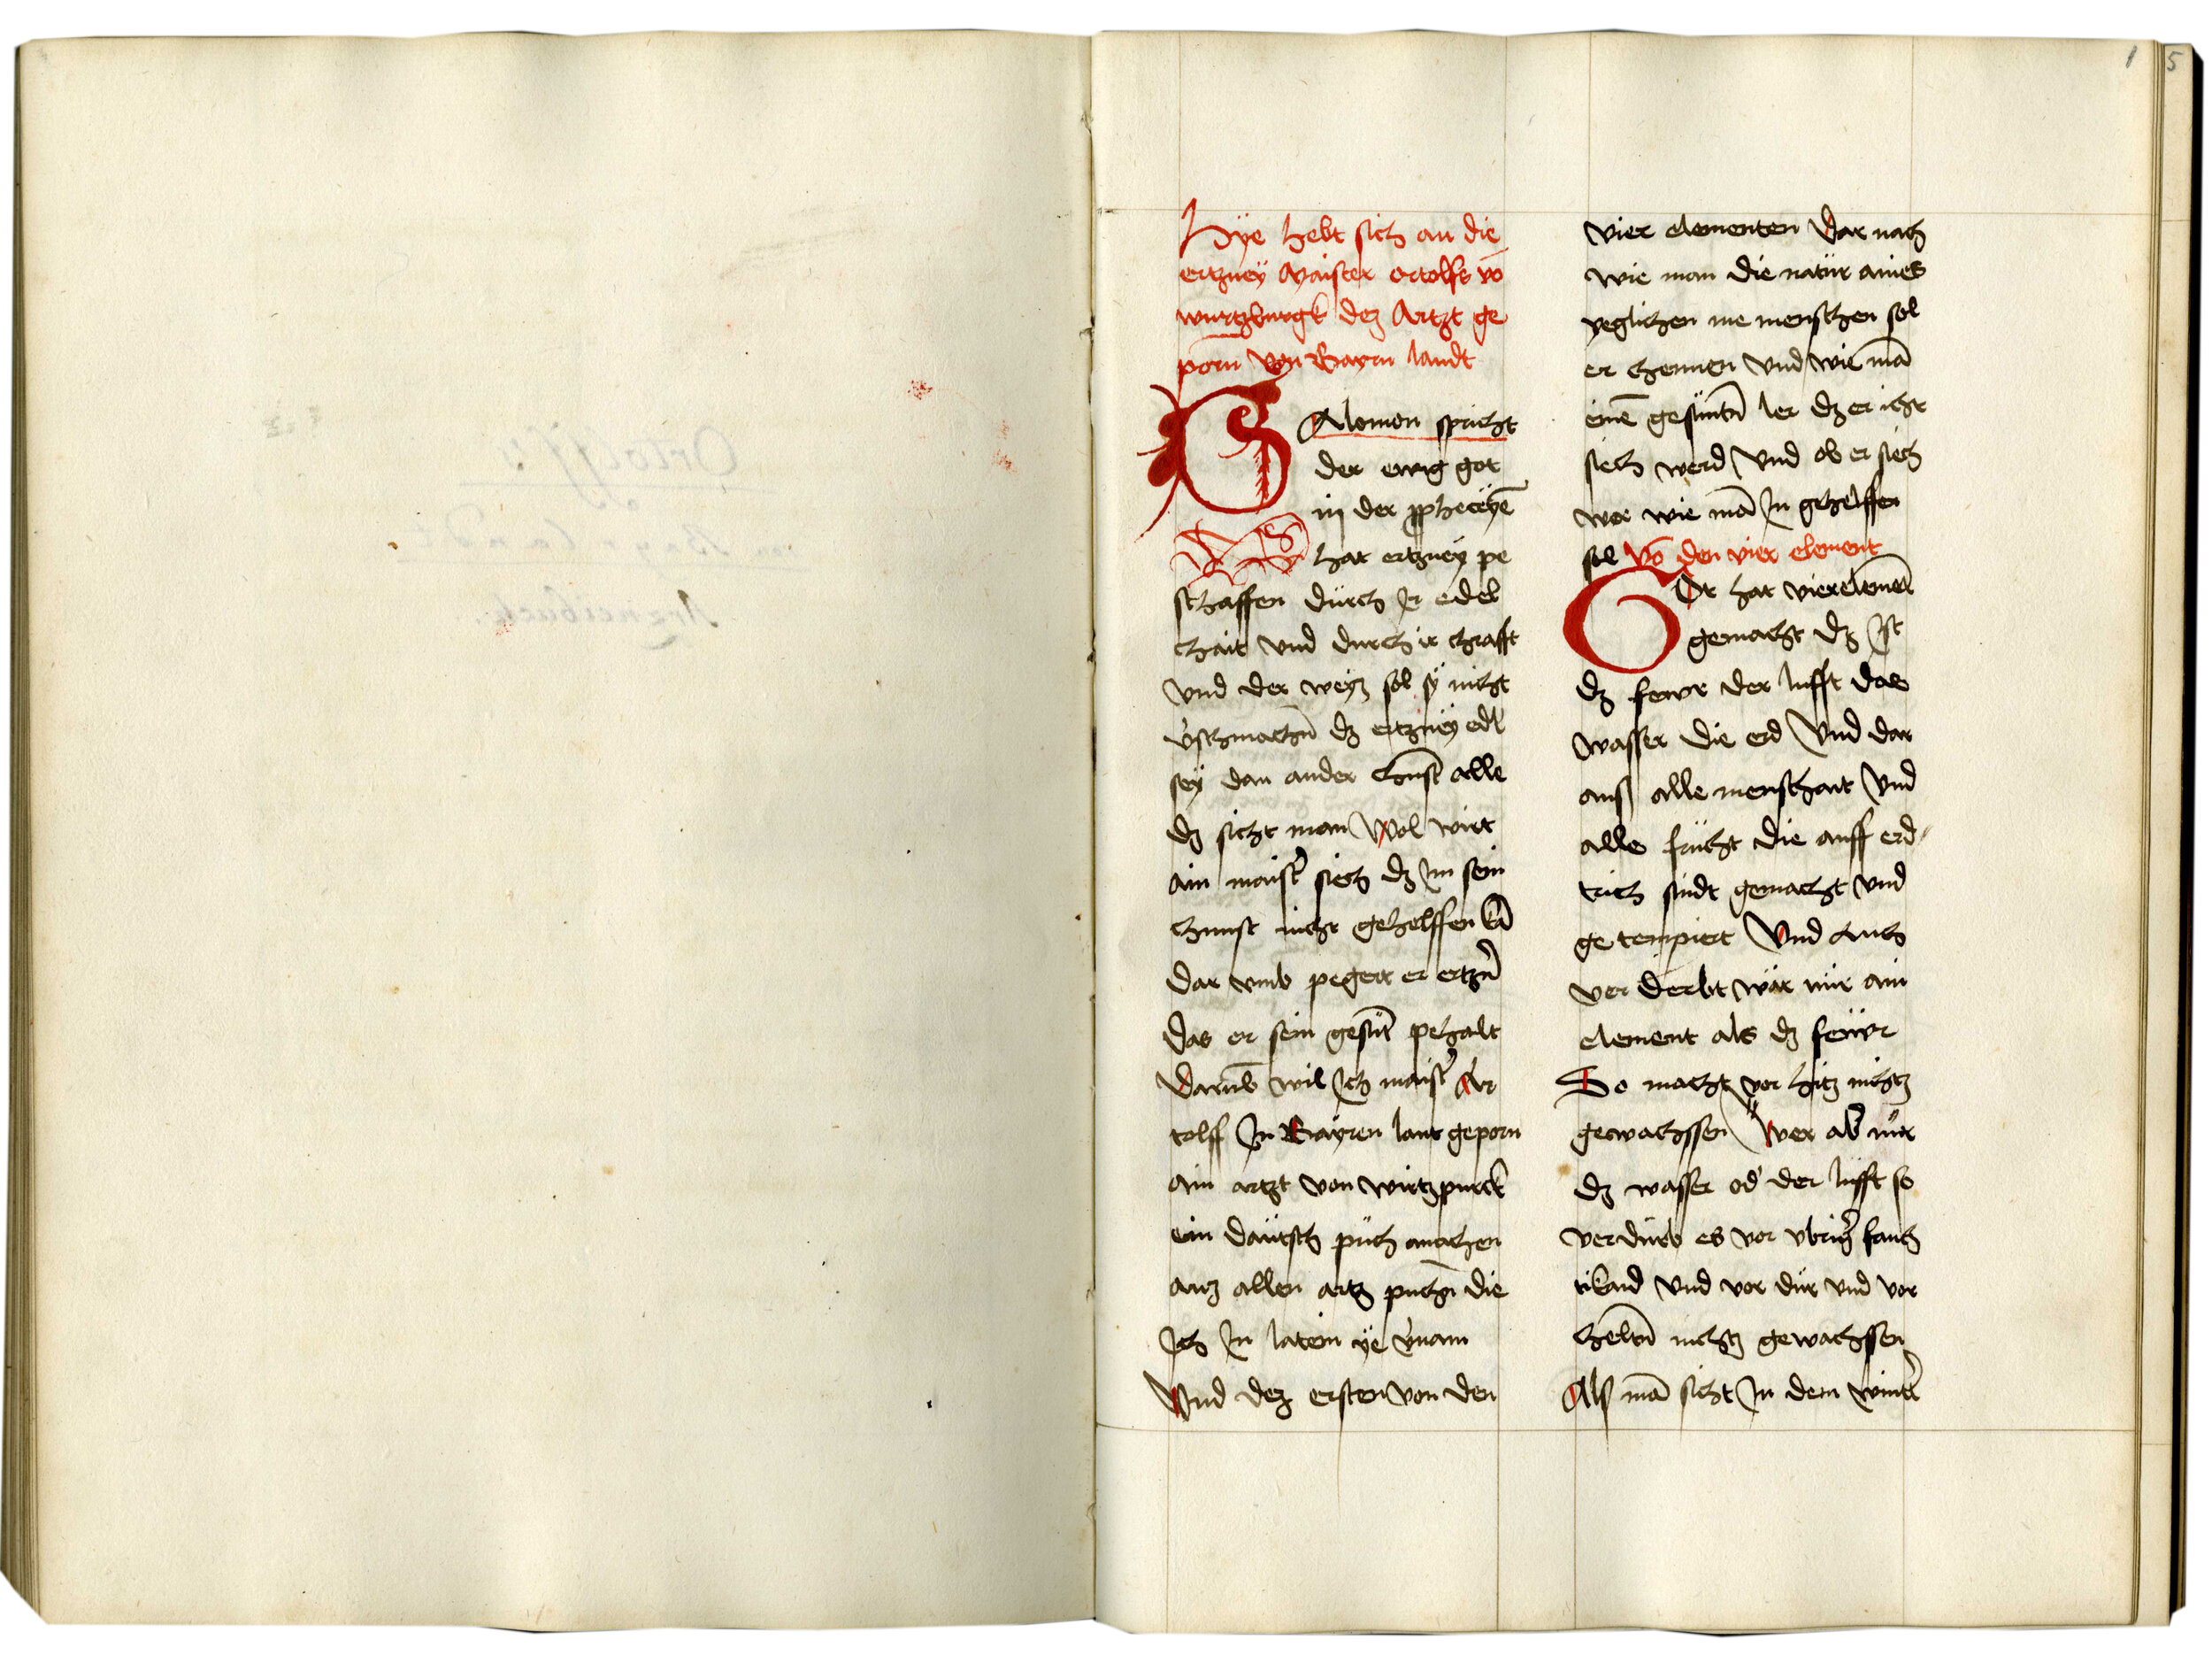 Hÿe hebt sich an die
ertzneÿ Maister ortolfs vō
wurtzburgk dez Artzt ge
porn von Bayrn landt
Salomon spricht
der ewig got
in der
hat ertzneÿ pe
schaffen dürch Jr edel
chait vnd durch ir chrafft
vnd der weÿz sol sÿ nicht
v̓schmachn̄ dz ertzneÿ edl
seÿ dan ander chūst alle
dz sicht man wol wirt
ain maist̓ siech dz Jm sein
chunst nicht gehelffen kā
dar vmb pegert er ertzn̓
das er sein gesūt pehalt
darūb wil Jch maist̓ Ar
tolff Jn Bayren lant geporn
ain artzt von wirtzpurck
ein däutsch püch machen
auz allen artz puchn̄ die
Jch Jn latein ÿe v̓nam
Vnd dez ersten von den
vier elementen dar nach
wie man die natür aines
yeglichen me menschen sol
er chennen vnd wie mā
einē gesüntn̄ ler dz er icht
siech werd vnd ob er siech
wer wie mā Jn gehelffen
sol Vō den vier element
Got hat vier elemēt
gemacht dz Jst
dz fewr der lufft das
wasser die erd vnd dar
auß alle menschait vnd
alle frücht die auff erd〃
trich sindt gemacht vnd
ge tempiert Vnd auch
ver derbt wär nür ain
element als dz fewr
So macht vor hitz nichtz
gewachssen Wer ab̓ nür
dz wasser od̓ der lufft so
verdürb es vor vbrig̓ fauch
tikaid vnd vor dür vnd vor
cheltn̄ nichtz gewachssen
Als mā sicht Jn dem wint̓
1
5